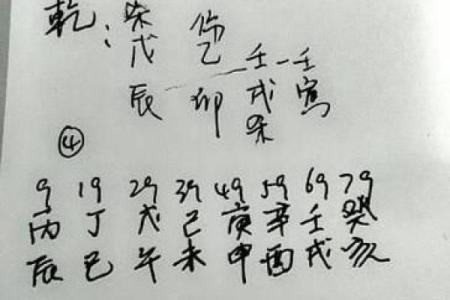 乾: 杀 伤
戊 乙 壬 壬
辰 卯 戌 寅
杀
④
9 19 29 39 49 59 69 79
丙 丁 戊 己 庚 辛 壬 癸
辰 巳 午 未 申 酉 戌 亥